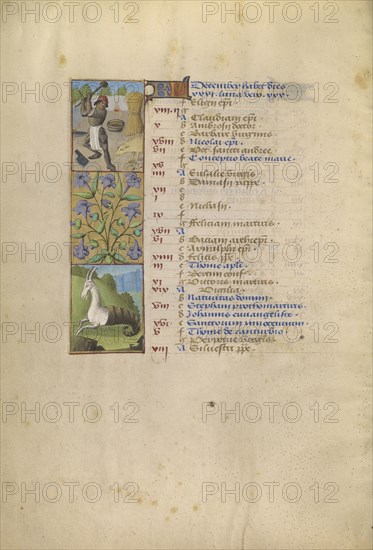 December habet dies
XXXI. luna vero XXX.
f Eligii epi.
xiii. ii g
A Claudiani epi.
x b Ambrosii doctor
c Barbare virginis
xviii d Nicolai epi.
vii e Oct. sancti andree.
f Conceptio beate marie.
xv g
iiii A Eulalie virginis
b Damasi pape.
xii c
i d
e Nichasii.
ix f
g Feliciani martiris.
xvii A
vi b Gaciani archiepi.
c
xiiii d Felicis
iii e Thome apli.
f
xi g Victoris martiris
xix A Vigilia.
b Nativitas domini.
viii c Stephani prothomartiris.
d Johannis evvangeliste.
xvi e Sanctorum innocentum.
v f Thome de canturbio.
g
xiii A Silvestri pape.